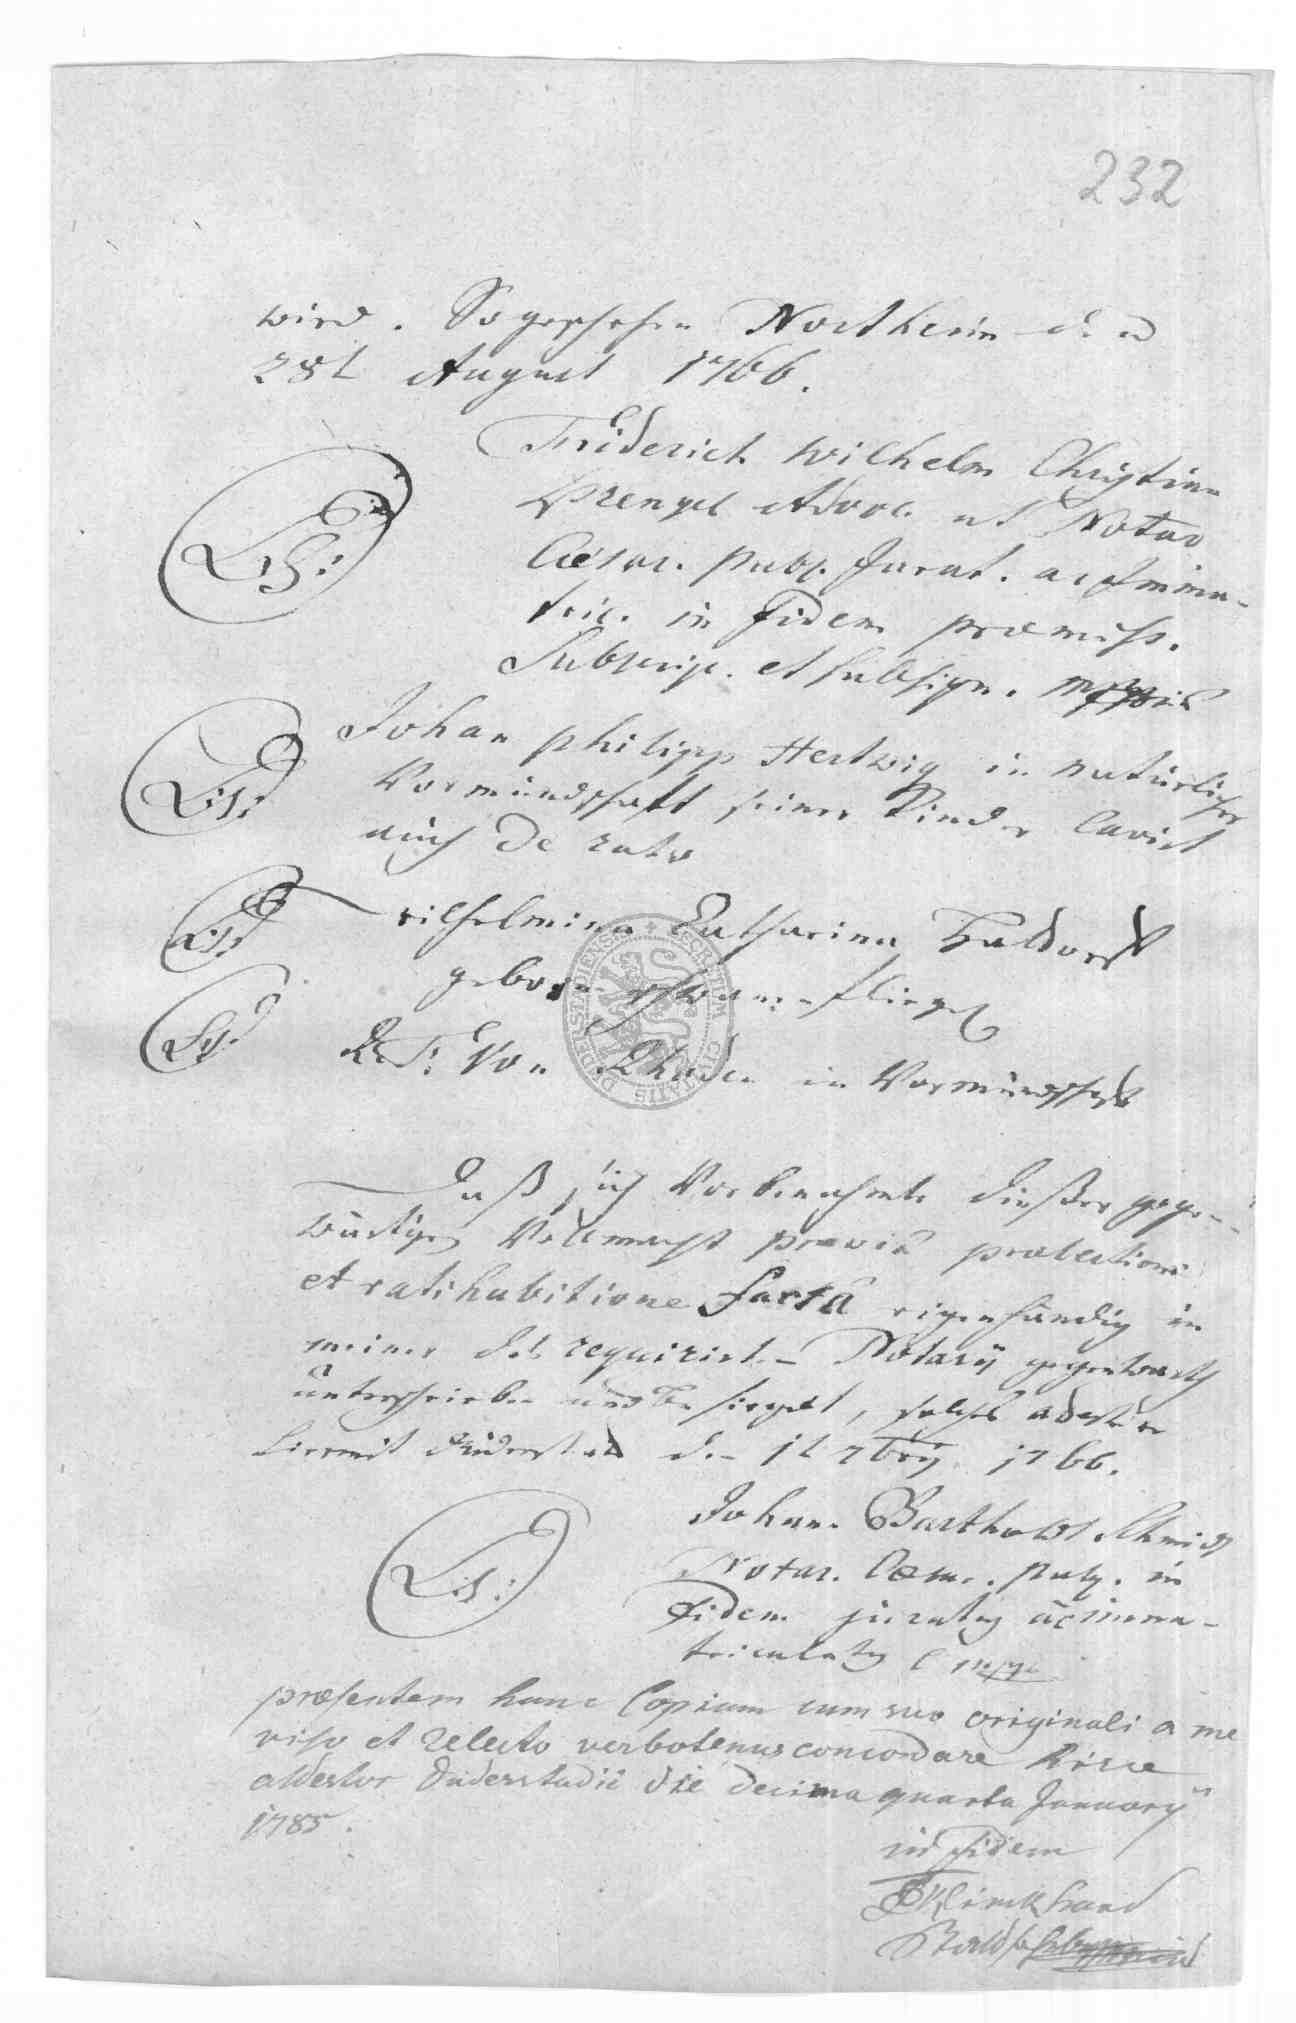 232
wird. So geschehen Northeim den
28t August 1766.
Friderich Wilhelm Christian
Sprengel Advoc. et Notar
Cæsar. publ. Jurat. ac Imma-
tric. in fidem præmiss.
Subscrip. et subsign. mppria
L.S.
Johan philipp Hertwig in natürlicher
Vormundschafft seiner Kinder cavirt
auch de rato
L.S.
Wilhelmina Catharina
gebohrne
L.S.
Von Rhoden in Vormundschafft
L.S.
Daß sich Vorbenahmte dießer gegen-
wärtige Vollmacht præviâ prælectione
et ratihabitione factâ eigenhändig in
meiner des requirirten Notarÿ gegenwarth
unterschrieben und besiegelt, solches adtestire
hiermit Duderstadt den 1t 7brÿ 1766.
Johan Barthold Schmidt
Notar. Cæsar. publ. in
fidem juratus ac imma-
triculatus mppr
L.S.
præsentem hanc Copiam cum suo originali a me
viso et relecto verbotenus concordare hisce
attestor Duderstadii die decima quarta January
1785.
in fidem
Klinckhard